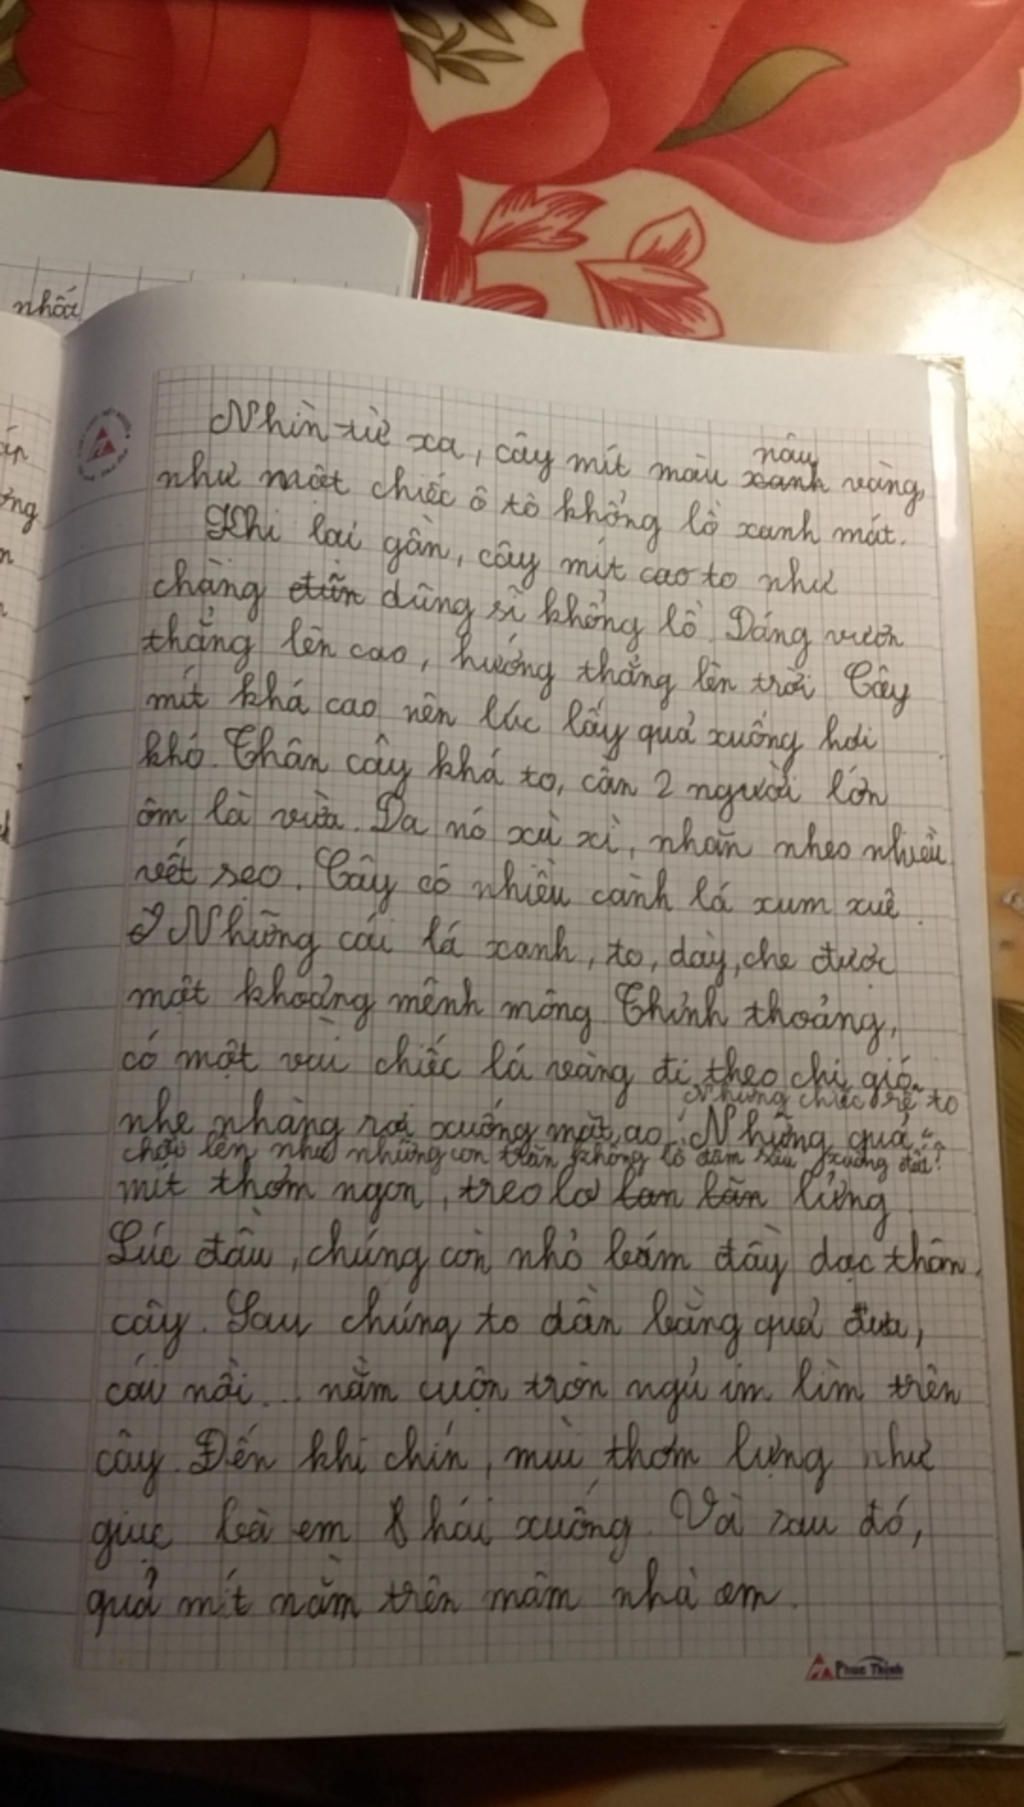 nhất
nâu
Nhìn từ xa, cây mít màu xanh vàng,
như một chiếc ô tô khổng lồ xanh mát.
Khi lại gần, cây mít cao to như
chàng dũng sĩ khổng lồ. Dáng vươn
thẳng lên cao, hướng thẳng lên trời. Cây
mít khá cao nên lúc lấy quả xuống hơi
khó. Thân cây khá to, cần 2 người lớn
ôm là vừa. Da nó xù xì, nhăn nheo nhiều
vết sẹo. Cây có nhiều cành lá xum xuê.
Những cái lá xanh, to, dày, che được
một khoảng mênh mông. Thỉnh thoảng,
có một vài chiếc lá vàng đi theo chị gió
Những chiếc rễ to
nhẹ nhàng rơi xuống mặt ao. Những quả
lên như những con trăn khổng lồ đâm sâu xuống đất.
mít thơm ngon, treo lơ lửng
Lúc đầu, chúng còn nhỏ bám đầy dọc thân
cây. Sau chúng to dần bằng quả dưa,
cái nồi... nằm cuộn tròn ngủ im lìm trên
cây. Đến khi chín, mùi thơm lựng như
giục bà em hái xuống. Và sau đó,
quả mít nằm trên mâm nhà em.
Phuc Thinh